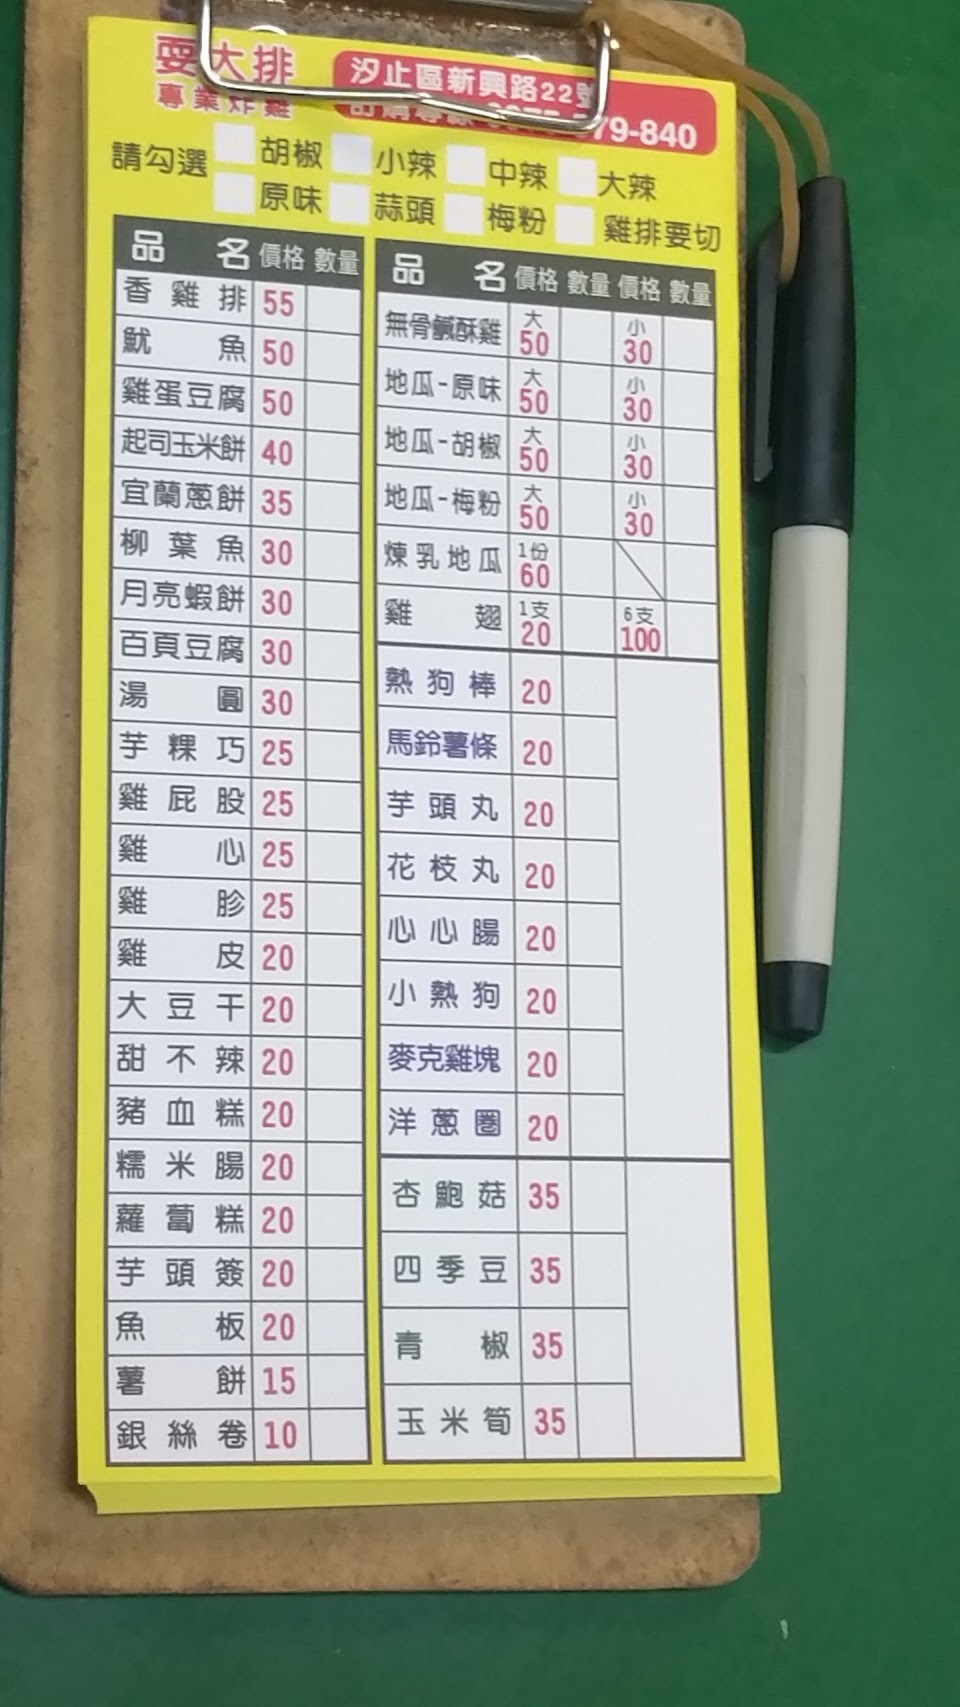 耍大排
專業炸雞
汐止區新興路22號
79-840
請勾選 胡椒 小辣 中辣 大辣
原味 蒜頭 梅粉 雞排要切
品名 價格 數量
香雞排 55
魷魚 50
雞蛋豆腐 50
起司玉米餅 40
宜蘭蔥餅 35
柳葉魚 30
月亮蝦餅 30
百頁豆腐 30
湯圓 30
芋粿巧 25
雞屁股 25
雞心 25
雞胗 25
雞皮 20
大豆干 20
甜不辣 20
豬血糕 20
糯米腸 20
蘿蔔糕 20
芋頭簽 20
魚板 20
薯餅 15
銀絲卷 10
品名 價格 數量 價格 數量
無骨鹹酥雞 大 50 小 30
地瓜-原味 大 50 小 30
地瓜-胡椒 大 50 小 30
地瓜-梅粉 大 50 小 30
煉乳地瓜 1份 60
雞翅 1支 20 6支 100
熱狗棒 20
馬鈴薯條 20
芋頭丸 20
花枝丸 20
心心腸 20
小熱狗 20
麥克雞塊 20
洋蔥圈 20
杏鮑菇 35
四季豆 35
青椒 35
玉米筍 35